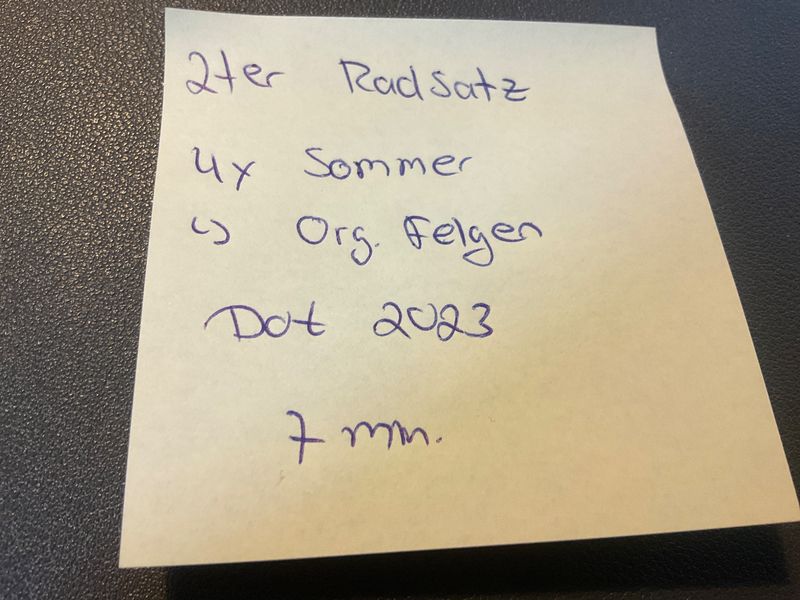 2ter Radsatz
4x Sommer
↳ Org. Felgen
Dot 2023
7 mm.